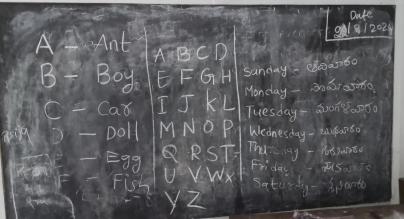 Date
A - Ant
B - Boy
C - Car
D - Doll
E - Egg
F - Fish
A B C D
E F G H
I J K L
M N O P
Q R S T
U V W X
Y Z
Sunday - ఆదివారం
Monday - సోమవారం
Tuesday - మంగళవారం
Wednesday - బుధవారం
Thursday - గురువారం
Friday - శుక్రవారం
Saturday - శనివారం